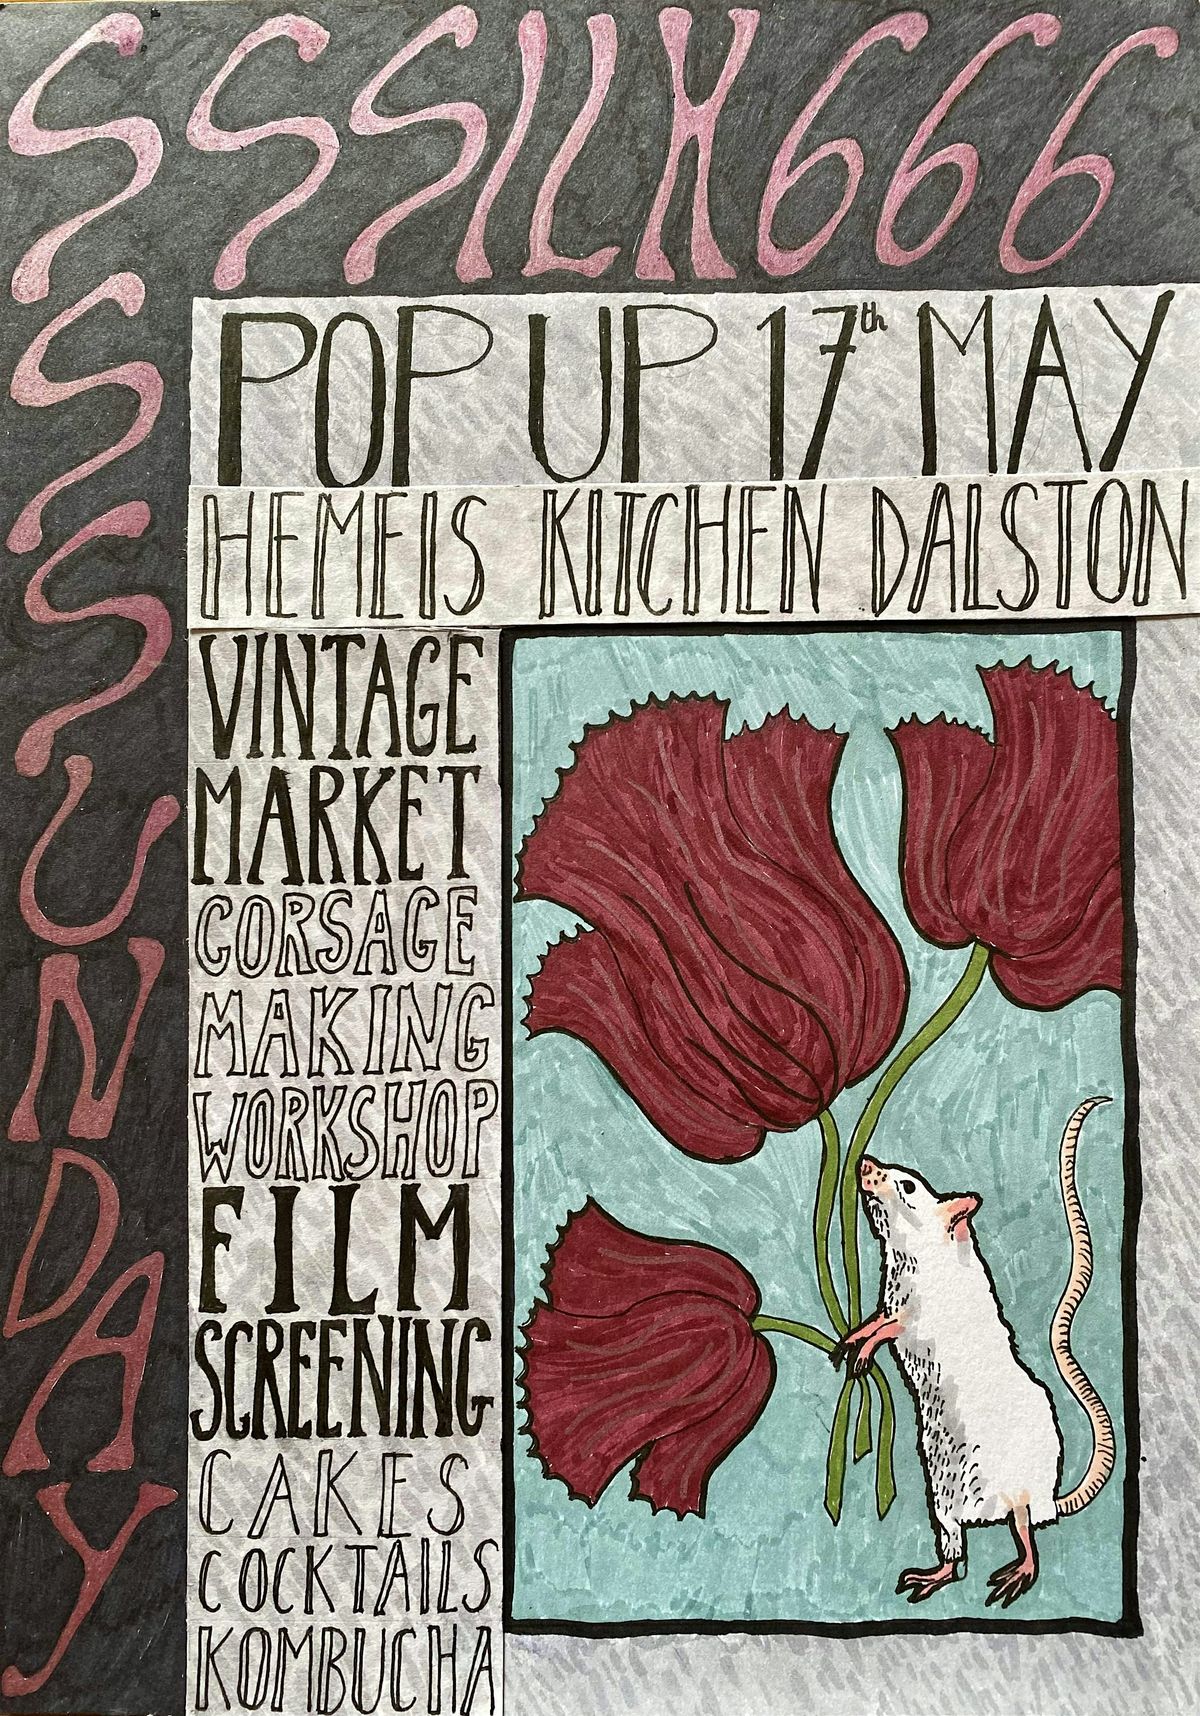 SSSILK666
SSSUNDAY
POP UP 17th MAY
HEMEIS KITCHEN DALSTON
VINTAGE
MARKET
CORSAGE
MAKING
WORKSHOP
FILM
SCREENING
CAKES
COCKTAILS
KOMBUCHA